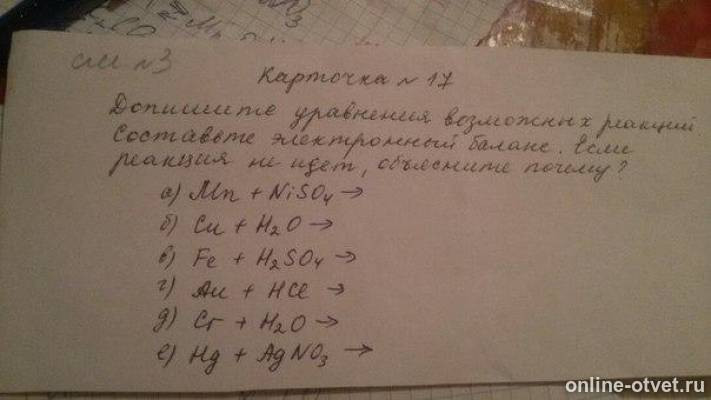 см №3
Карточка № 17
Допишите уравнения возможных реакций.
Составьте электронный баланс. Если
реакция не идет, объясните почему?
а) Mn + NiSO₄ →
б) Cu + H₂O →
в) Fe + H₂SO₄ →
г) Au + HCl →
д) Cr + H₂O →
е) Hg + AgNO₃ →
online-otvet.ru